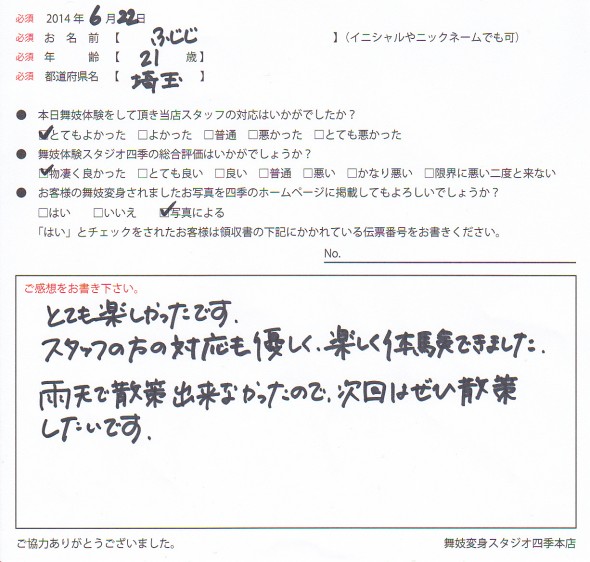 必須 2014年6月22日
必須 お名前【 ふじじ 】(イニシャルやニックネームでも可)
必須 年齢【 21 歳】
必須 都道府県名【 埼玉 】
● 本日舞妓体験をして頂き当店スタッフの対応はいかがでしたか?
☑とてもよかった □よかった □普通 □悪かった □とても悪かった
● 舞妓体験スタジオ四季の総合評価はいかがでしょうか?
☑物凄く良かった □とても良い □良い □普通 □悪い □かなり悪い □限界に悪い二度と来ない
● お客様の舞妓変身されましたお写真を四季のホームページに掲載してもよろしいでしょうか?
□はい □いいえ ☑写真による
「はい」とチェックをされたお客様は領収書の下記にかかれている伝票番号をお書きください。
No.
ご感想をお書き下さい。
とても楽しかったです.
スタッフの方の対応も優しく、楽しく体験できました.
雨天で散策出来なかったので、次回はぜひ散策
したいです.
ご協力ありがとうございました。 舞妓変身スタジオ四季本店